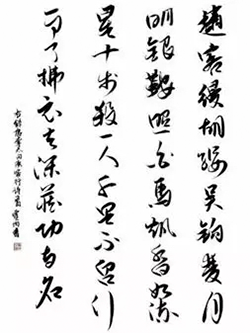 趙客縵胡纓吳鉤霜月
明銀鞍照白馬颯沓如流
星十步殺一人千里不留行
事了拂衣去深藏功與名
李太白俠客行詩